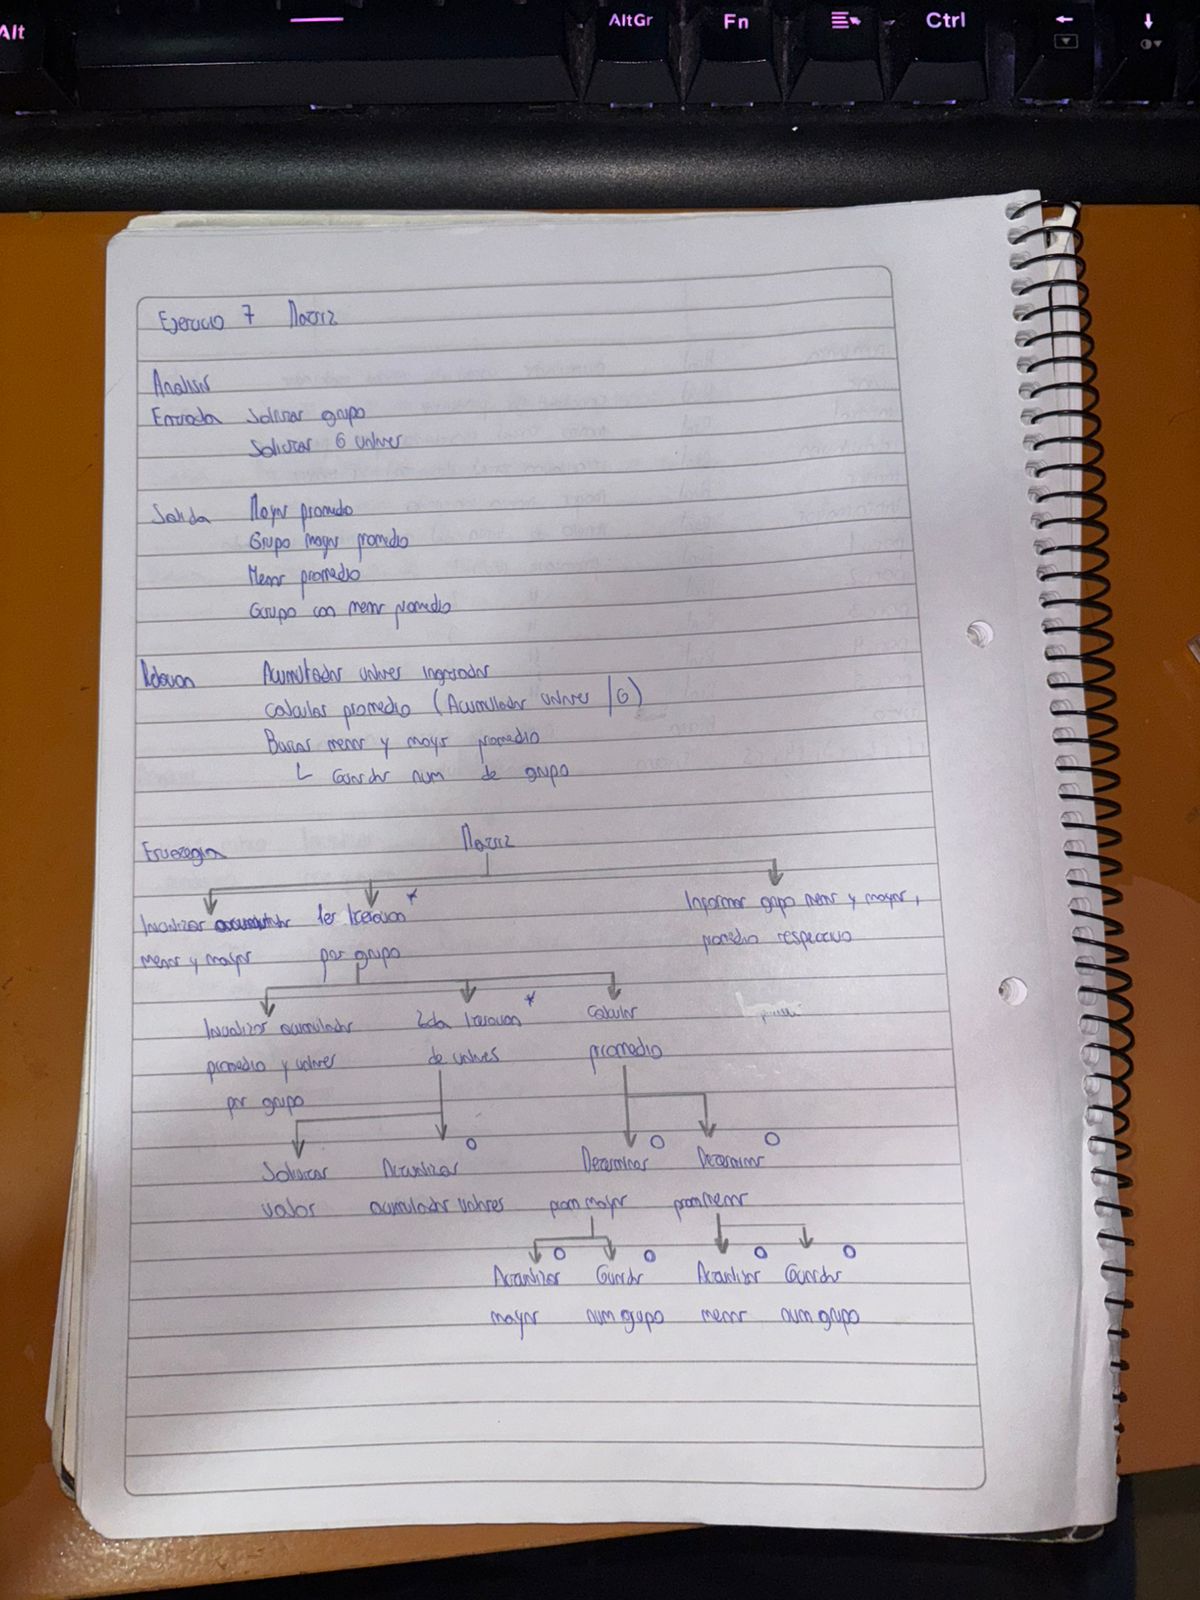 Alt
AltGr
Fn
Ctrl
Ejercicio 7 Matriz
Analisis
Entrada Solicitar grupo
Solicitar 6 valores
Salida Mayor promedio
Grupo mayor promedio
Menor promedio
Grupo con menor promedio
Relacion Acumulador valores ingresados
Calcular promedio (Acumulador valores /6)
Buscar menor y mayor promedio
Guardar num de grupo
Estrategia Matriz
Inicializar menor y mayor
1er Iteracion * por grupo
Informar grupo menor y mayor, promedio respectivo
Inicializar acumulador promedio y valores por grupo
2da Iteracion * de valores
Calcular promedio
Solicitar valor
Actualizar acumulador valores
Determinar prom mayor
Determinar prom menor
Actualizar mayor
Guardar num grupo
Actualizar menor
Guardar num grupo